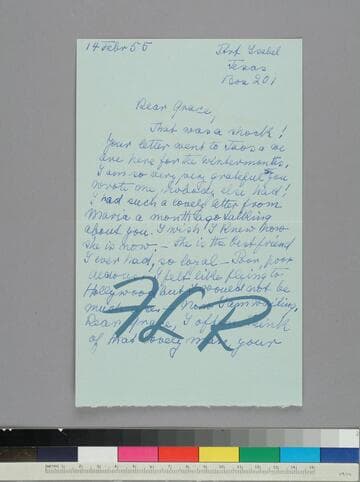 14 Febr 55
Port Isabel
Texas
Box 201
Dear Grace,
That was a shock!
Your letter went to Taos a we
are here for the wintermonths.
I am so very, very grateful you
wrote me, nobody else had!
I had such a lovely letter from
Maria a month ago talking
about you. I wish I knew how
she is now, – she is the best friend
I ever had, so loyal – Poor, poor
I felt like flying to
Hollywood but I would not be
much Now I am writing,
Dear Grace, I often think
of that lovely man, your
FLR